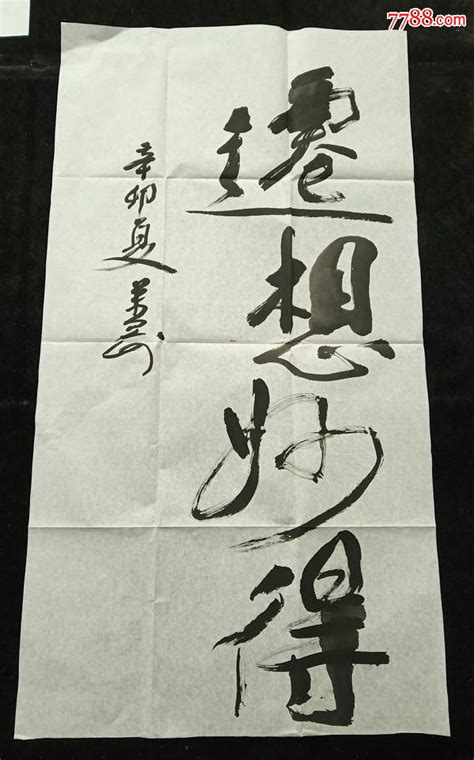 7788.com
遷想妙得
辛卯夏